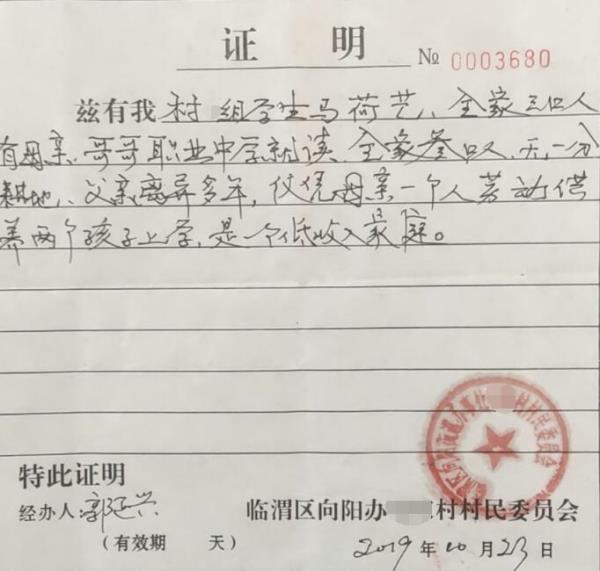 证 明
№ 0003680
兹有我村 组学生马荷艺、全家三口人
有母亲、哥哥职业中学就读、全家叁口人、无一分
耕地、父亲离异多年，仅凭母亲一个人劳动供
养两个孩子上学，是一个低收入家庭。
特此证明
经办人 郭延兴
临渭区向阳办 村村民委员会
（有效期 天）
2019年10月23日
村村民委员会